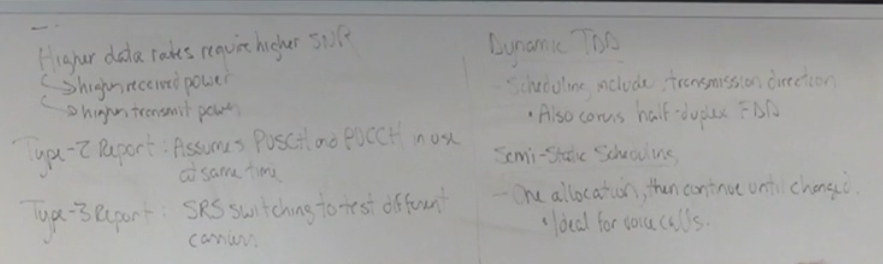 Higher data rates require higher SNR
↳ higher received power
↳ higher transmit power
Type-2 Report: Assumes PUSCH and PUCCH in use
at same time
Type-3 Report: SRS switching to test different
carriers
Dynamic TDD
- Scheduling include transmission direction
• Also covers half-duplex FDD
Semi-Static Scheduling
- One allocation, then continue until changed.
• Ideal for voice calls.